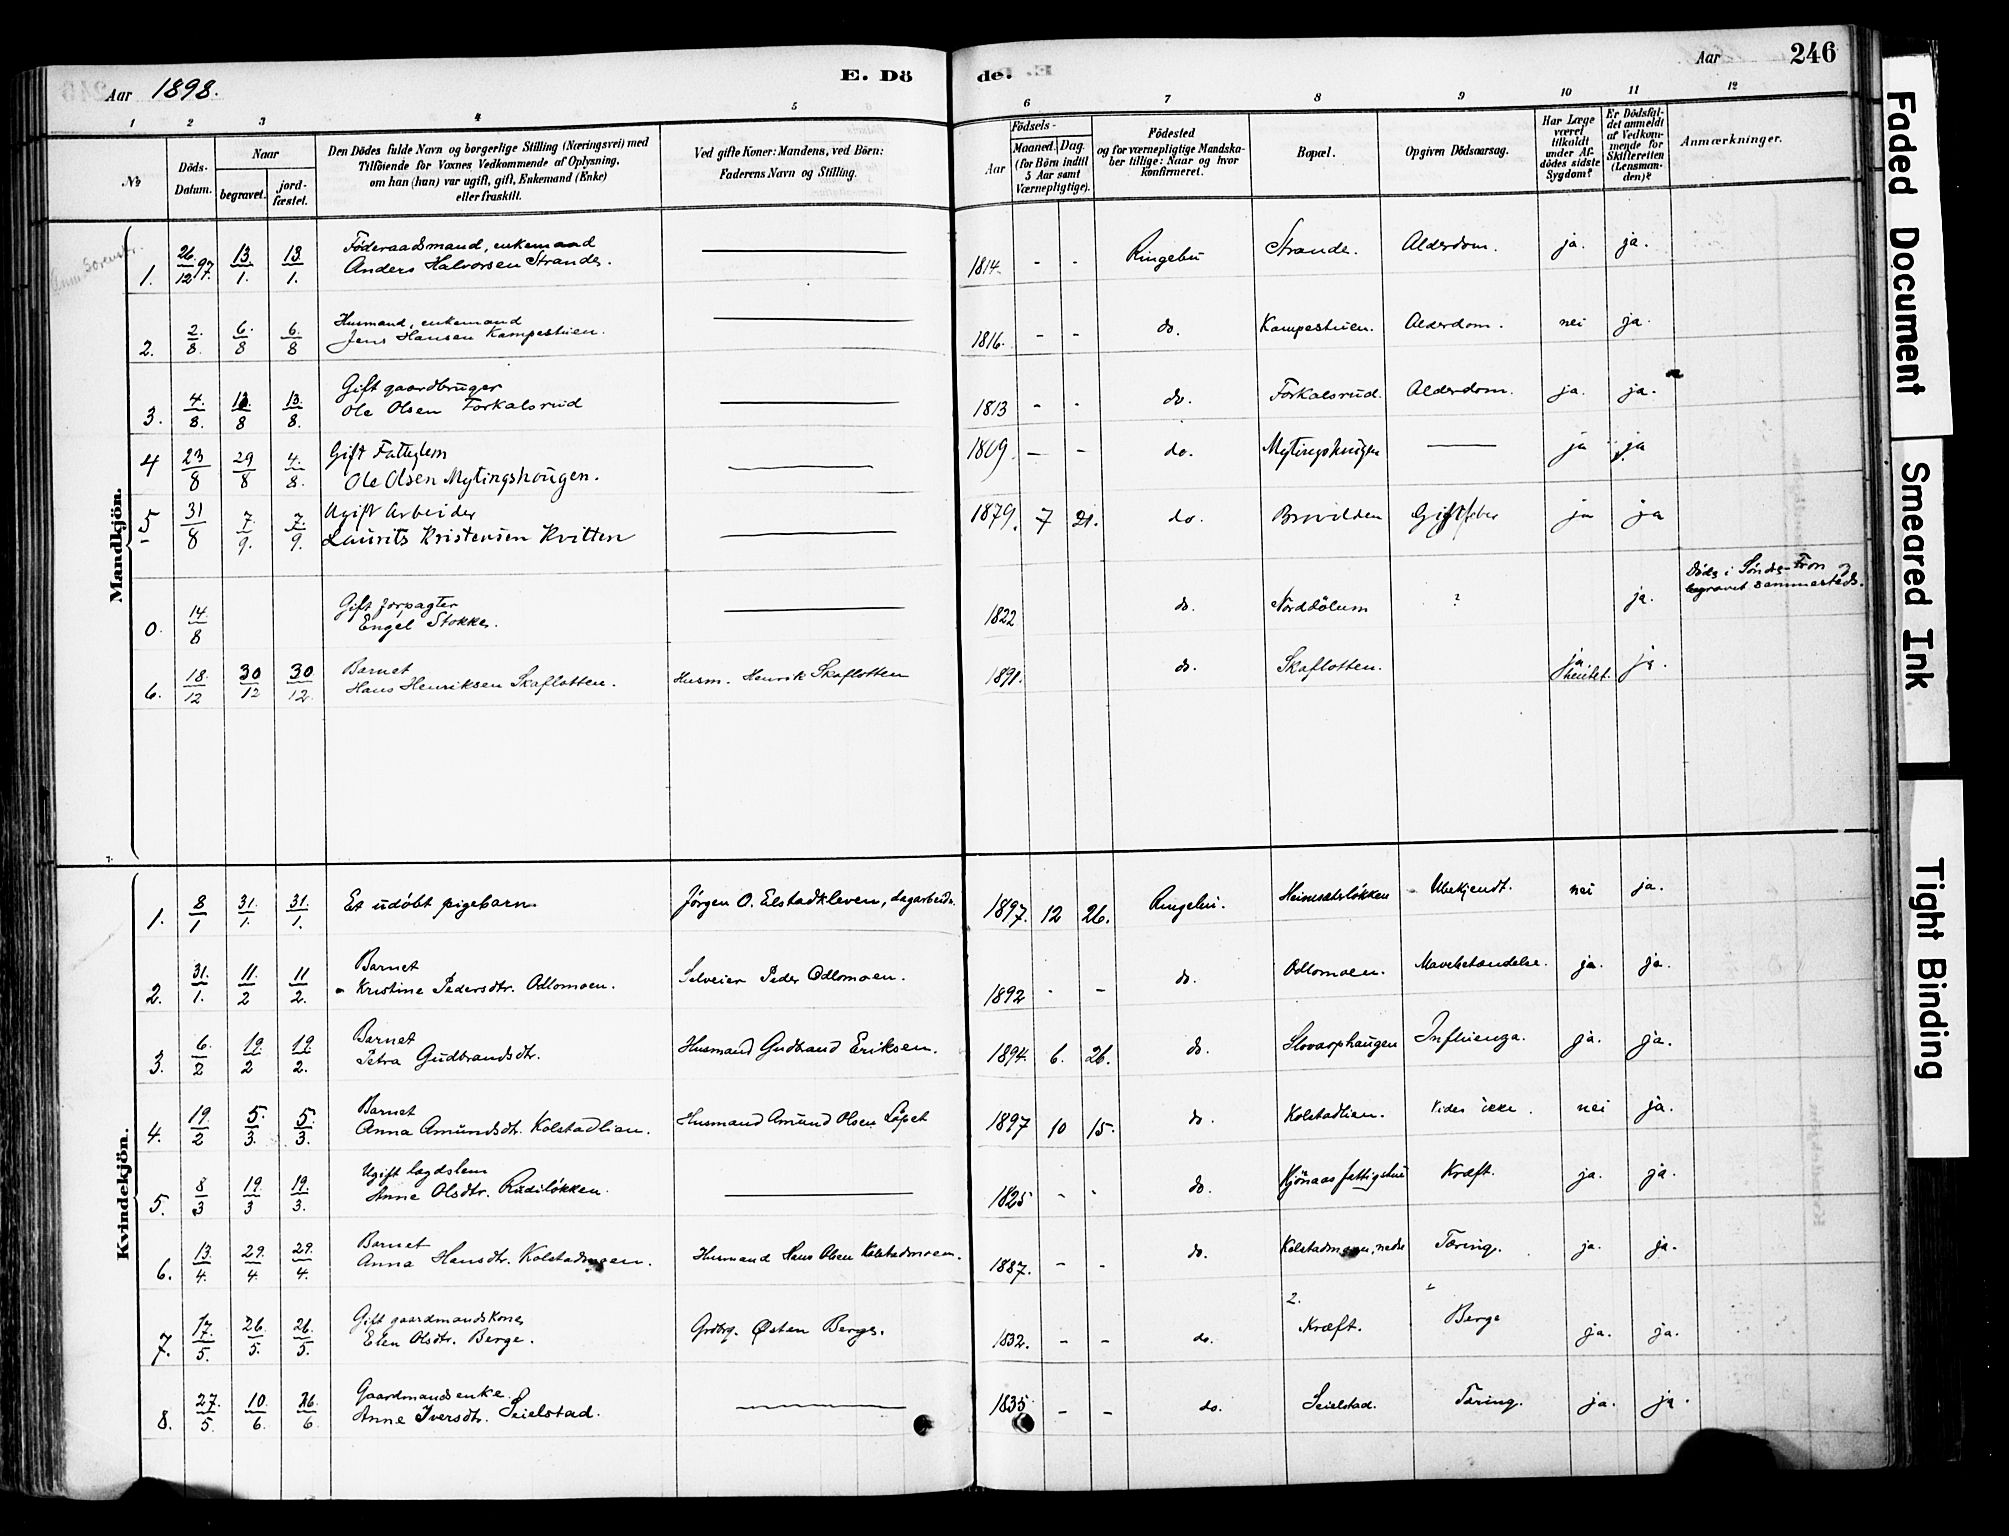 Aar 1898.
E. Döde.
Aar
246
1
2
3
4
5
6
7
8
9
10
11
12
№
Döds-Datum.
Naar
begravet.
jord-fæstet.
Den Dödes fulde Navn og borgerlige Stilling (Næringsvei) med
Tilföiende for Voxnes Vedkommende af Oplysning,
om han (hun) var ugift, gift, Enkemand (Enke)
eller fraskilt.
Ved gifte Koner: Mandens, ved Börn:
Faderens Navn og Stilling.
Födsels-
Aar
Maaned.
Dag.
(for Börn indtil
5 Aar samt
Værnepligtige).
Födested
og for værnepligtige Mandska-
ber tillige: Naar og hvor
konfirmeret.
Bopæl.
Opgiven Dödsaarsag.
Har Læge
været
tilkaldt
under Af-
dödes sidste
Sygdom?
Er Dödsfal-
det anmeldt
af Vedkom-
mende for
Skifteretten
(Lensman-
den)?
Anmærkninger.
Mandkjön.
1. 26/12 97. 13./1. 13/1. Føderaadsmand, enkemand
Anders Halvorsen Strande. 1814. - - Ringebu Strande. Alderdom. ja. ja.
2. 2./8. 6./8 6./8 Husmand, enkemand
Jens Hansen Kampestuen. 1816. - - do. Kampestuen. Alderdom. nei ja.
3. 4./8. 13./8 13./8. Gift gaardbruger
Ole Olsen Forkalsrud 1813 - - do. Forkalsrud. Alderdom. ja. ja.
4 23/8 29/8 4./8. Gift Fattiglem
Ole Olsen Mytingshougen. 1809. - - do. Mytingshaugen ja ja
5 31/8 7./9. 7./9. Ugift Arbeider
Laurits Kristensen Kvitten 1879. 7 21. do. Giftfeber ja ja
0. 14/8 Gift forpagter
Engel Stokke. 1822 do. Norddölum ? ja.
Döde i Söndre-Fron og
begravet sammesteds.
6. 18./12 30/12 30/12. Barnet
Hans Henriksen Skaflotten. Husm. Henrik Skaflotten 1891. do. Skaflotten. ja hentet. ja.
Kvindekjön.
1. 8/1 31./1. 31./1. Et udöbt pigebarn Jörgen O. Elstadkleven, dagarbeid. 1897. 12 26. Ringebu. Heimsæterløkken Ubekjendt. nei ja.
2. 31./1. 11./2 11/2. Barnet
Kristine Pedersdtr. Odlomoen. Selveier Peder Odlomoen. 1892 - - do. Odlomoen. Mavebetændelse. ja. ja.
3. 6./2 19./2 19./2. Barnet
Petra Gudbrandsdtr. Husmand Gudbrand Eriksen. 1894. 6. 26. do. Influenza. ja. ja.
4. 19/2 5./3. 5./3. Barnet
Anna Amundsdtr. Kolstadlien. Husmand Amund Olsen Löpet 1897 10 15. do. Kolstadlien. Vides ikke. nei ja.
5. 8/3 19./3 19./3. Ugift lægdslem
Anne Olsdtr. Rudiløkken. 1825 - - do. Hjönaas fattigstue Kræft. ja. ja.
6. 13./4. 29./4. 29./4. Barnet
Anna Hansdtr. Kolstadmoen. Husmand Hans Olsen Kolstadmoen. 1887. - - do. Kolstadmoen, nedre Tæring. ja. ja.
7. 17./5. 26./5. 26./5. Gift gaardmandskone
Elen Olsdtr. Berge. Grdbrg. Østen Berge. 1832. - - do. 2. Kræft. Berge ja. ja.
8. 27./5. 10./6. 26/6. Gaardmandsenke.
Anne Iversdtr. Seielstad. 1835 - - do. Seielstad. Tæring. ja. ja.
Faded Document
Smeared Ink
Tight Binding